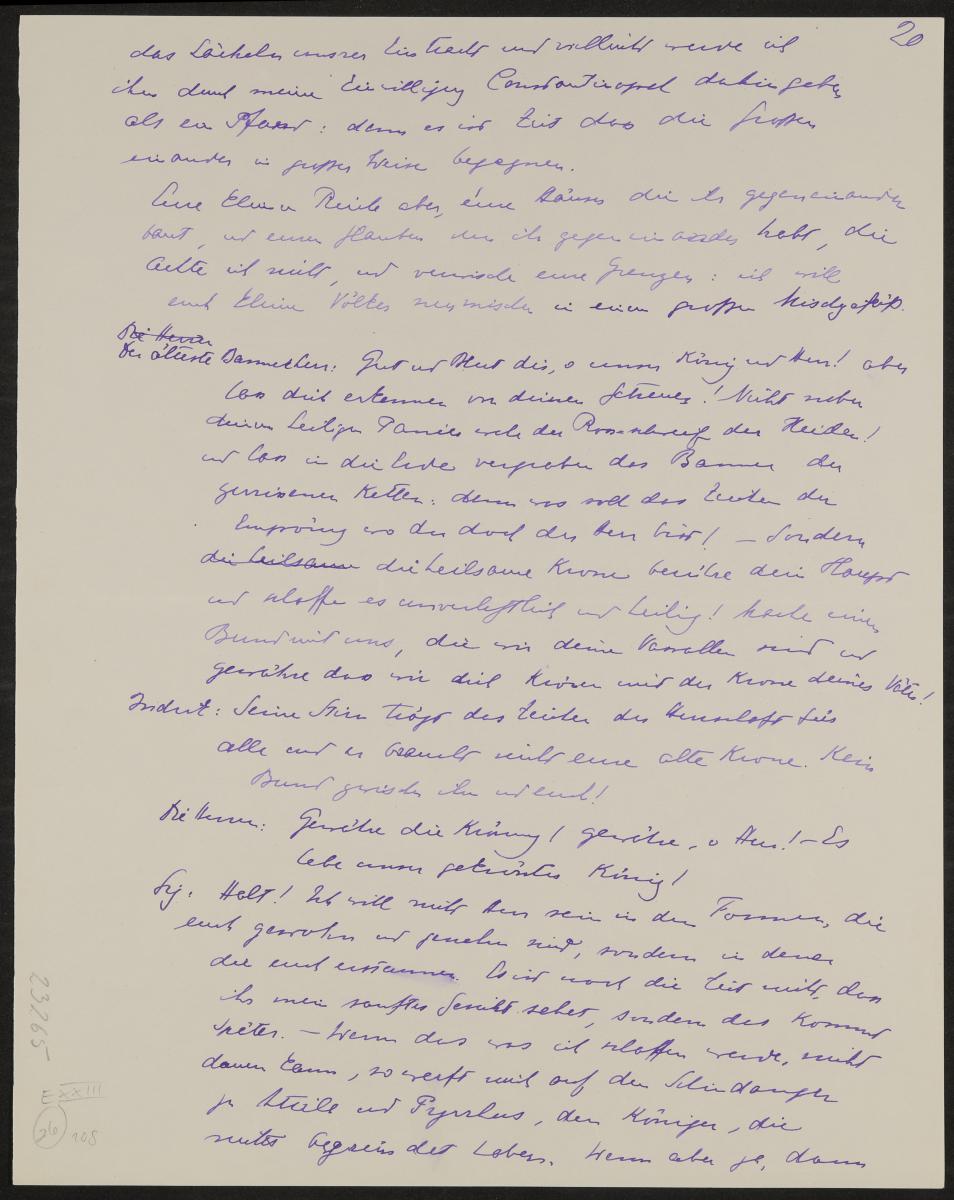 20
das Lächeln unsrer Eintracht und vielleicht werde ich
ihm durch meine Einwilligung Constantinopel dahingeben
als ein Pfand: denn es ist Zeit das die Grossen
einander in grosser Weise begegnen.
Eure kleinen Reiche aber, eure Häuser die ihr gegeneinander
baut, und euren Glauben den ihr gegeneinander habt, die
achte ich nicht, und verwische eure Grenzen: ich will
euch kleine Völker vermischen in einem grossen Mischgefäss.
Die Herren
Der älteste Bannerherr: Gut und Blut dir, o unser König und Herr! aber
lass dich erkennen von deinen Getreuen! Nicht neben
deinem heiligen Panier wehe der Rossschweif der Heiden!
und lass in die Erde vergraben das Banner der
zerrissenen Ketten: denn was soll das Zeichen der
Empörung wo du doch der Herr bist! – Sondern
die heilsame die heilsame Krone berühre dein Haupt
und schaffe es unverletzlich und heilig! Mache einen
Bund mit uns, die wir deine Vasallen sind und
gewähre das wir dich krönen mit der Krone deines Vaters!
: Seine Stirn trägt das Zeichen der Herrschaft für
alle und er braucht nicht eure alte Krone. Kein
Bund zwischen ihm und euch!
Die Herren: Gewähre die Krönung! gewähre, o Herr! – Es
lebe unser gekrönter König!
Sig: Halt! Ich will nicht Herr sein in den Formen, die
euch gewohnt und genehm sind, sondern in denen
die euch erstaunen. Es ist noch die Zeit nicht, dass
ihr mein sanftes Gesicht sehet, sondern das kommt
später. – Wenn das was ich schaffen werde, nicht
dauern kann, so werft mich auf den Schindanger
zu Attila und Pyrrhus, den Königen, die
nichts begründet haben. Wenn aber ja, dann
23265
E XXIII
26
108